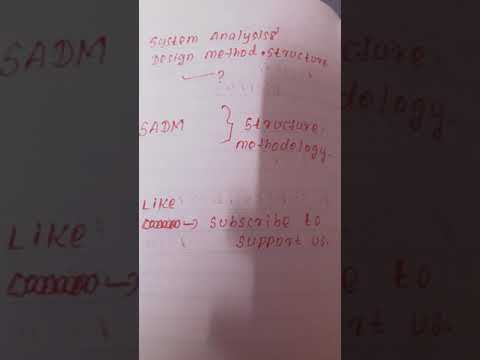 System Analysis &
Design method & structure
?
SADM } structure
methodology.
Like
→ subscribe to
support us.